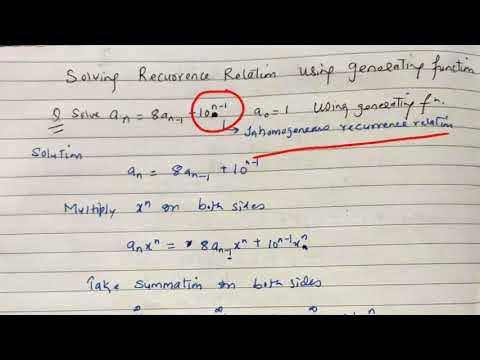 Solving Recurrence Relation using generating function
Q Solve aₙ = 8aₙ₋₁ + 10ⁿ⁻¹, a₀ = 1 Using generating fⁿ.
→ Inhomogeneous recurrence relation
Solution
aₙ = 8aₙ₋₁ + 10ⁿ⁻¹
Multiply xⁿ on both sides
aₙxⁿ = 8aₙ₋₁xⁿ + 10ⁿ⁻¹xⁿ
Take Summation on both sides